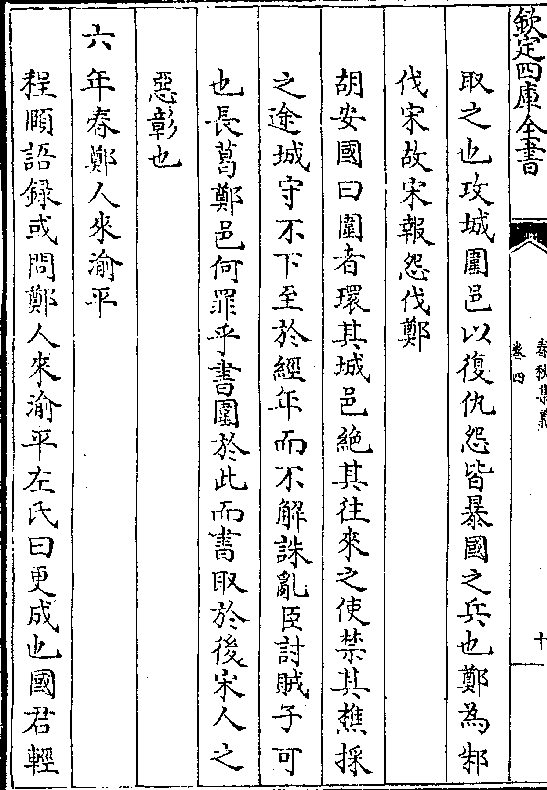 欽定四庫全書
春秋集義
卷四
十
取之也攻城圍邑以復仇怨皆暴國之兵也鄭為邾
伐宋故宋報怨伐鄭
胡安國曰圍者環其城邑絶其往來之使禁其樵採
之途城守不下至於經年而不解誅亂臣討賊子可
也長葛鄭邑何罪乎書圍於此而書取於後宋人之
惡彰也
六年春鄭人來渝平
程頤語録或問鄭人來渝平左氏曰更成也國君輕